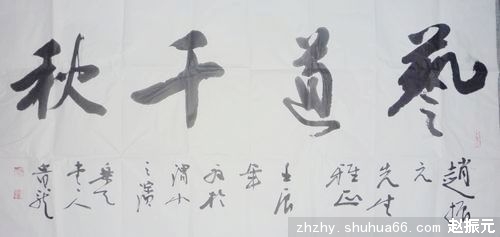 藝道千秋
趙振
元
先生
雅正
壬辰
於
渭水
之濱
人
zhzhy.shuhua66.com 赵振元